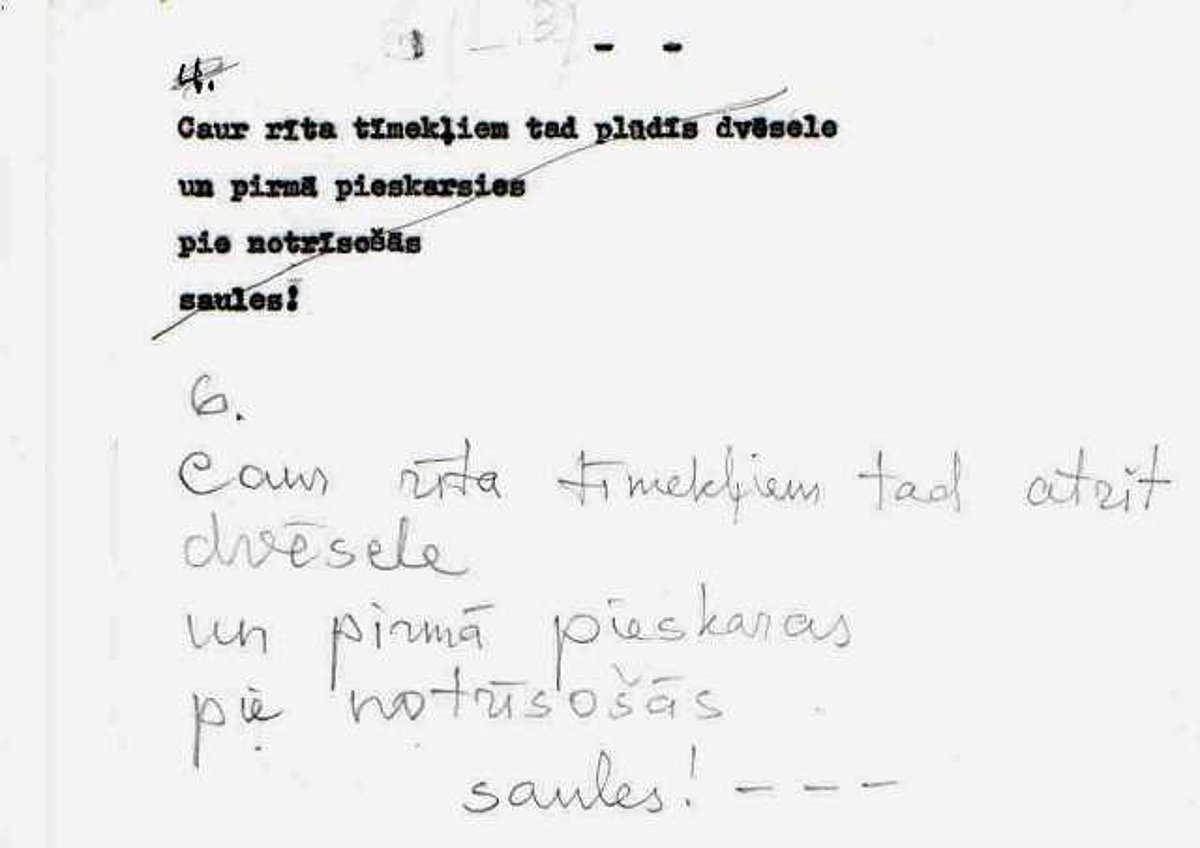 - -
4.
Caur rīta tīmekļiem tad plūdīs dvēsele
un pirmā pieskarsies
pie notrīsošās
saules!
6.
Caur rīta tīmekļiem tad atrīt
dvēsele
un pirmā pieskaras
pie notrīsošās
saules! - - -